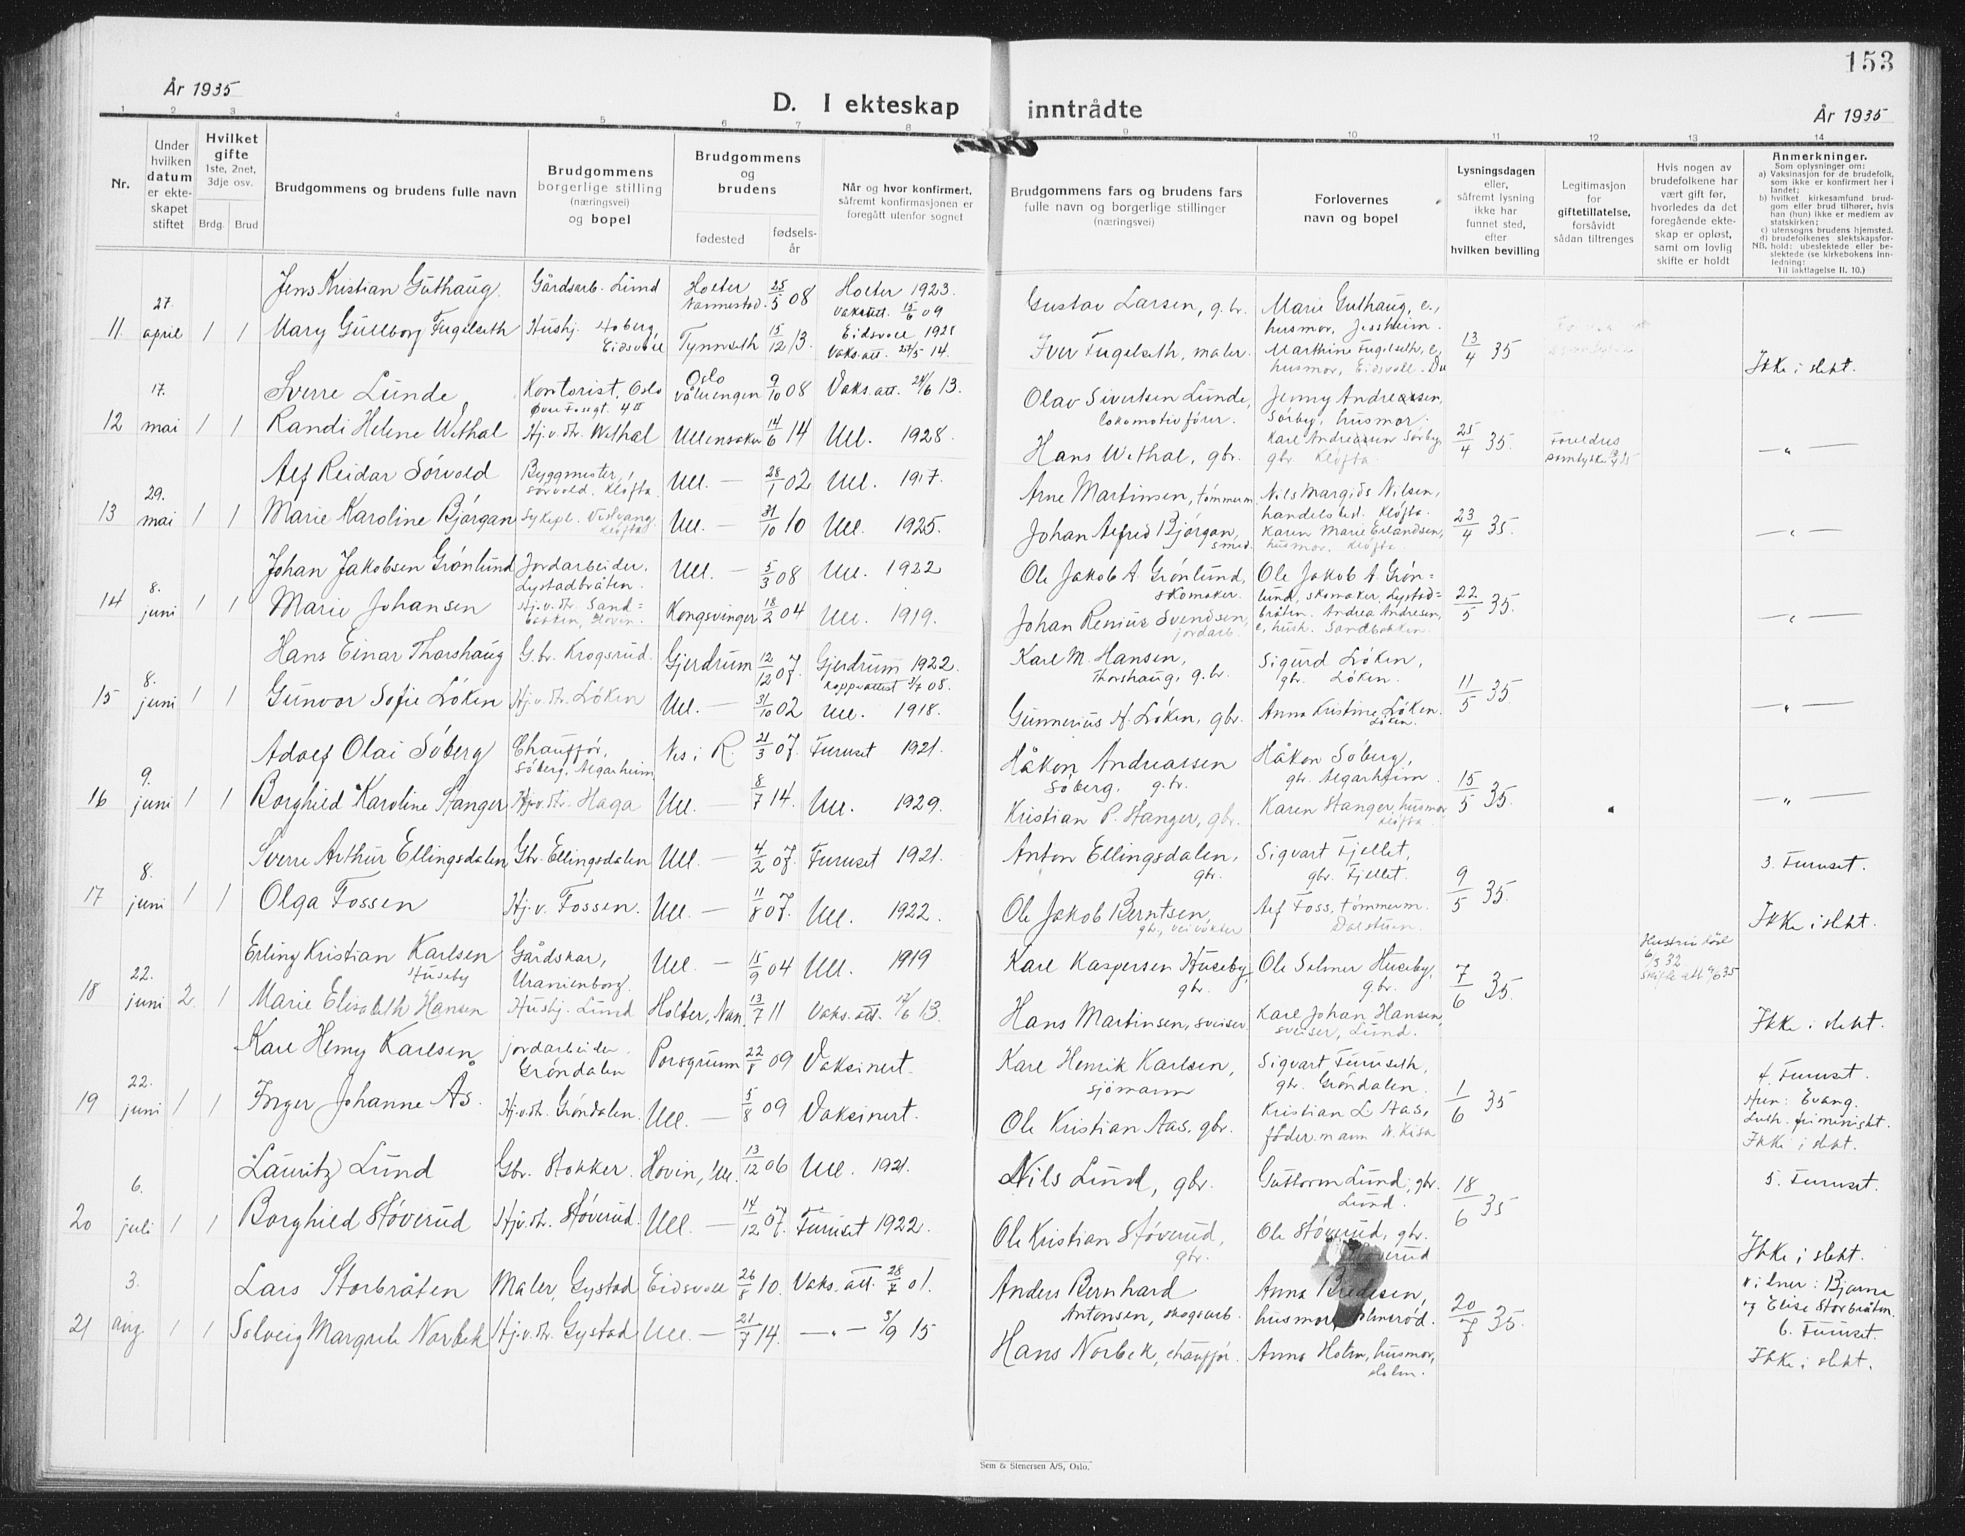 153
År 1935
D. I ekteskap inntrådte
År 1935
1 2 3 4 5 6 7 8 9 10 11 12 13 14
Nr.
Under hvilken datum er ekteskapet stiftet
Hvilket gifte
1ste, 2net, 3dje osv.
Brdg. Brud
Brudgommens og brudens fulle navn
Brudgommens borgerlige stilling (næringsvei) og bopel
Brudgommens og brudens
fødested
fødselsår
Når og hvor konfirmert, såfremt konfirmasjonen er foregått utenfor sognet
Brudgommens fars og brudens fars fulle navn og borgerlige stillinger (næringsvei)
Forlovernes navn og bopel
Lysningsdagen eller, såfremt lysning ikke har funnet sted, efter hvilken bevilling
Legitimasjon for giftetillatelse, forsåvidt sådan tiltrenges
Hvis nogen av brudefolkene har vært gift før, hvorledes da det foregående ekteskap er opløst, samt om lovlig skifte er holdt
Anmerkninger.
Som oplysninger om:
a) Vaksinasjon for de brudefolk, som ikke er konfirmert her i landet;
b) hvilket kirkesamfund brudgom eller brud tilhører, hvis han (hun) ikke er medlem av statskirken;
c) utensogns brudens hjemsted.
d) brudefolkenes slektskapsforhold: ubeslektede eller beslektede (se kirkebokens innledning:
NB. Til iakttagelse II. 10.)
11 27. april 1 1
Jens Kristian Guthaug Gårdsarb. Lund Holter Nannestad 25/5 08 Holter 1923. Vaks.att. 15/6 09 Gustav Larsen, g.br. Marie Guthaug, e., husmor, Jessheim.
Mary Gullborg Fugelseth Hushj. Hoberg, Eidsvoll Tynneseth 15/12 13 Eidsvoll 1928 Vaks.att. 14. Iver Fugelseth, maler. Marthine Fugelseth, e., husmor, Eidsvoll. 13/4 35 Ikke i slekt.
12 17. mai 1 1
Sverre Lunde Kontorist, Oslo Øvre Fossgt. 4 II Oslo Vålerengen 9/10 08 Vaks.att. 24/6 13. Olav Sivertsen Lunde, lokomotivfører. Jenny Andreassen Sørby, husmor.
Randi Helene Wethal Hj.v.str. Wethal Ullensaker 14/6 14 Ull. 1928. Hans Wethal, gbr. Karl Andreassen Sørby, gbr. Kløfta. 25/4 35. Foreldres samtykke — „ —
13 29. mai 1 1
Alf Reidar Sørvold Byggmester, Sørvold. Kløfta. Ull. — 28/1 02 Ull. 1917. Arne Martinsen, tømmerm. Nils Margido Nilsen, handelsbest. Kløfta.
Marie Karoline Bjørgan Sykepl. Vestvang. Kløfta Ull. — 31/10 10 Ull. 1925. Johan Alfred Bjørgan, smed. Karen Marie Erlandsen, husmor, Kløfta. 23/4 35. — „ —
14 8. juni 1 1
Johan Jakobsen Grønlund Jordarbeider, Lystadbråten. Ull. — 5/3 08 Ull. 1922 Ole Jakob A. Grønlund, skomaker. Ole Jakob A. Grønlund, skomaker, Lystadbråten.
Marie Johansen Hj.v.str. Sandbakken, Hovin. Kongsvinger 18/2 04 Ull. 1919. Johan Renius Svendsen, jordarb. Andrea Andresen, e, hush. Sandbakken. 22/5 35. — „ —
15 8. juni 1 1
Hans Einar Thorshaug G.br. Krogsrud. Gjerdrum 12/12 07 Gjerdrum 1922 Koppeattest 3/7 08. Karl M. Hansen, Thorshaug, g.br. Sigurd Løken, gbr. Løken.
Gunvor Sofie Løken Hj.v.str. Løken Ull. — 31/10 02 Ull. 1918. Gunnerius H. Løken, gbr. Anna Kristine Løken. Løken. 11/5 35. — „ —
16 9. juni 1 1
Adolf Olai Søberg Chauffør, Søberg, Algarheim Nes i R. 21/3 07. Furuset 1921. Håkon Andreassen Søberg, g.br. Håkon Søberg, gbr. Algarheim.
Borghild Karoline Stanger Hj.v.str. Haga Ull. — 8/7 14. Ull. 1929. Kristian P. Stanger, gbr. Karen Stanger, husmor Kløfta. 15/5 35. — „ —
17 8. juni 1 1
Sverre Arthur Ellingsdalen Gbr. Ellingsdalen Ull. — 4/2 07. Furuset 1921. Anton Ellingsdalen, gbr. Sigvart Fjellet, gbr. Fjellet. 3. Furuset.
Olga Fossen Hj.v. Fossen. Ull. — 11/8 07. Ull. 1922. Ole Jakob Berntsen, gbr., veivokter Alf Foss, tømmerm. Dalstuen. 9/5 35. Ikke i slekt.
18 22. juni 2 1
Erling Kristian Karlsen Huseby Gårdskar, Uranienborg. Ull. — 15/9 04 Ull. 1919 Karl Kaspersen Huseby, gbr. Ole Solmer Huseby, gbr. Hustru død 6/3 32 Skifte att. 35
Marie Elisabeth Hansen Hushj. Lund Holter, Nan. 13/7 11 Vaks.att. 12/6 13. Hans Martinsen, sveiser Karl Johan Hansen, sveiser, Lund. 7/6 35. Ikke i slekt.
19 22. juni 1 1
Karl Henry Karlsen Jordarbeider. Grøndalen Porsgrunn 22/8 09 Vaksinert. Karl Henrik Karlsen, sjømann Sigvart Furuseth, gbr. Grøndalen. 4. Furuset.
Inger Johanne Ås. Hj.v.str. Grøndalen. Ull. — 5/8 09 Vaksinert. Ole Kristian Aas, gbr. Kristian L. Aas, fødermann N. Kisa 1/6 35 Hun: Evang. Luth. frimenight. Ikke i slekt.
20 6. juli 1 1
Lauritz Lund Gbr. Stokker. Hovin, Ull. 13/12 06 Ull. 1921. Nils Lund, gbr. Guttorm Lund, gbr. Lund. 5. Furuset.
Borghild Støverud Hj.v.str. Støverud. Ull. — 14/12 07. Furuset 1922. Ole Kristian Støverud, gbr. Ole Støverud, gbr. Støverud 18/6 35 Ikke i slekt.
21 3. aug. 1 1
Lars Storbråten Maler, Gystad Eidsvoll 26/8 10. Vaks.att. 28/7 01. Anders Bernhard Antonsen, skogsarb. Anna Bredesen, husmor, Vilner: Bjarne og Elise Storbråten.
Solveig Margrete Norbek Hj.v.str. Gystad Ull. — 21/7 14. — „ — 3/9 15 Hans Norbek, chauffør. Anna Holm, husmor, Holm. 20/7 35. 6. Furuset. Ikke i slekt.
Sem & Stenersen A/S, Oslo.